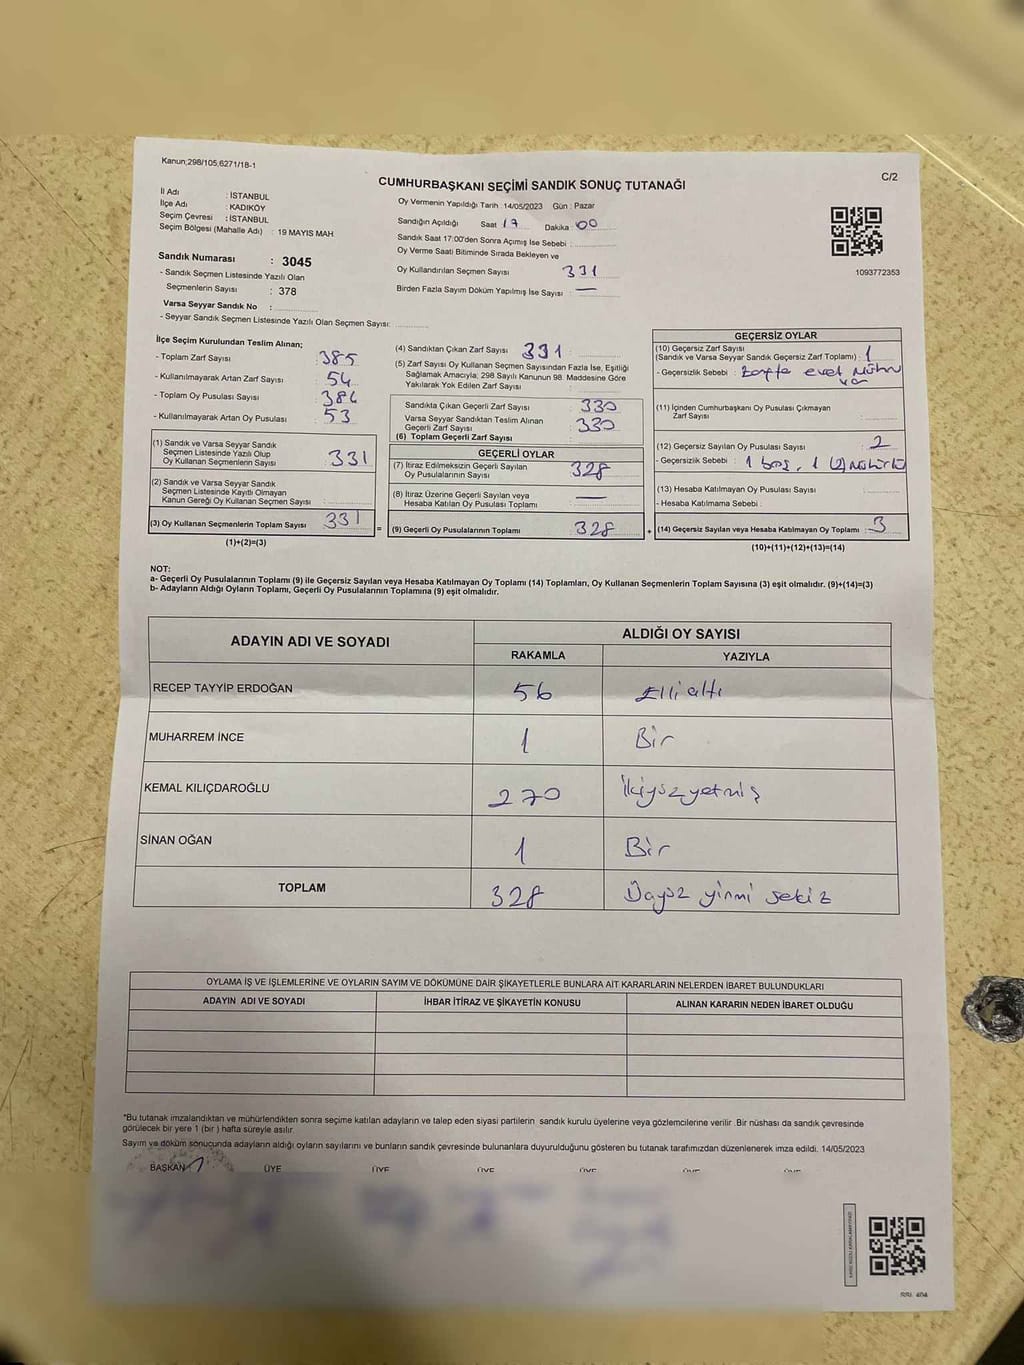 Kanun;298/105,6271/18-1
C/2
CUMHURBAŞKANI SEÇİMİ SANDIK SONUÇ TUTANAĞI
İl Adı : İSTANBUL
İlçe Adı : KADIKÖY
Seçim Çevresi : İSTANBUL
Seçim Bölgesi (Mahalle Adı) : 19 MAYIS MAH
Sandık Numarası : 3045
- Sandık Seçmen Listesinde Yazılı Olan
Seçmenlerin Sayısı : 378
Varsa Seyyar Sandık No :
- Seyyar Sandık Seçmen Listesinde Yazılı Olan Seçmen Sayısı:
Oy Vermenin Yapıldığı Tarih : 14/05/2023 Gün : Pazar
Sandığın Açıldığı Saat 17 Dakika : 00
Sandık Saat 17:00'den Sonra Açılmış İse Sebebi :
Oy Verme Saati Bitiminde Sırada Bekleyen ve
Oy Kullandırılan Seçmen Sayısı : 331
Birden Fazla Sayım Döküm Yapılmış İse Sayısı : —
1093772353
İlçe Seçim Kurulundan Teslim Alınan;
- Toplam Zarf Sayısı : 385
- Kullanılmayarak Artan Zarf Sayısı : 54
- Toplam Oy Pusulası Sayısı : 384
- Kullanılmayarak Artan Oy Pusulası : 53
(1) Sandık ve Varsa Seyyar Sandık
Seçmen Listesinde Yazılı Olup
Oy Kullanan Seçmenlerin Sayısı : 331
(2) Sandık ve Varsa Seyyar Sandık
Seçmen Listesinde Kayıtlı Olmayan
Kanun Gereği Oy Kullanan Seçmen Sayısı :
(3) Oy Kullanan Seçmenlerin Toplam Sayısı : 331
(1)+(2)=(3)
(4) Sandıktan Çıkan Zarf Sayısı : 331
(5) Zarf Sayısı Oy Kullanan Seçmen Sayısından Fazla İse, Eşitliği
Sağlamak Amacıyla; 298 Sayılı Kanunun 98. Maddesine Göre
Yakılarak Yok Edilen Zarf Sayısı :
Sandıkta Çıkan Geçerli Zarf Sayısı : 330
Varsa Seyyar Sandıktan Teslim Alınan
Geçerli Zarf Sayısı : 330
(6) Toplam Geçerli Zarf Sayısı :
GEÇERLİ OYLAR
(7) İtiraz Edilmeksizin Geçerli Sayılan
Oy Pusulalarının Sayısı : 328
(8) İtiraz Üzerine Geçerli Sayılan veya
Hesaba Katılan Oy Pusulası Toplamı : —
= (9) Geçerli Oy Pusulalarının Toplamı : 328
GEÇERSİZ OYLAR
(10) Geçersiz Zarf Sayısı
(Sandık ve Varsa Seyyar Sandık Geçersiz Zarf Toplamı) : 1
- Geçersizlik Sebebi : Zarfta evet mührü
var
(11) İçinden Cumhurbaşkanı Oy Pusulası Çıkmayan
Zarf Sayısı :
(12) Geçersiz Sayılan Oy Pusulası Sayısı : 2
- Geçersizlik Sebebi : 1 boş, 1 (2) mühürlü
(13) Hesaba Katılmayan Oy Pusulası Sayısı :
- Hesaba Katılmama Sebebi :
+ (14) Geçersiz Sayılan veya Hesaba Katılmayan Oy Toplamı : 3
(10)+(11)+(12)+(13)=(14)
NOT:
a- Geçerli Oy Pusulalarının Toplamı (9) ile Geçersiz Sayılan veya Hesaba Katılmayan Oy Toplamı (14) Toplamları, Oy Kullanan Seçmenlerin Toplam Sayısına (3) eşit olmalıdır. (9)+(14)=(3)
b- Adayların Aldığı Oyların Toplamı, Geçerli Oy Pusulalarının Toplamına (9) eşit olmalıdır.
ADAYIN ADI VE SOYADI ALDIĞI OY SAYISI
RAKAMLA YAZIYLA
RECEP TAYYİP ERDOĞAN 56 Elli altı
MUHARREM İNCE 1 Bir
KEMAL KILIÇDAROĞLU 270 İkiyüzyetmiş
SİNAN OĞAN 1 Bir
TOPLAM 328 Üçyüz yirmi sekiz
OYLAMA İŞ VE İŞLEMLERİNE VE OYLARIN SAYIM VE DÖKÜMÜNE DAİR ŞİKAYETLERLE BUNLARA AİT KARARLARIN NELERDEN İBARET BULUNDUKLARI
ADAYIN ADI VE SOYADI İHBAR İTİRAZ VE ŞİKAYETİN KONUSU ALINAN KARARIN NEDEN İBARET OLDUĞU
*Bu tutanak imzalandıktan ve mühürlendikten sonra seçime katılan adayların ve talep eden siyasi partilerin sandık kurulu üyelerine veya gözlemcilerine verilir .Bir nüshası da sandık çevresinde
görülecek bir yere 1 (bir ) hafta süreyle asılır.
Sayım ve döküm sonucunda adayların aldığı oyların sayılarını ve bunların sandık çevresinde bulunanlara duyurulduğunu gösteren bu tutanak tarafımızdan düzenlenerek imza edildi. 14/05/2023
BAŞKAN ÜYE ÜYE ÜYE ÜYE ÜYE ÜYE